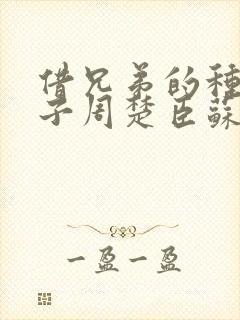 借兄弟的種
子周楚臣蘇
一盈一盈